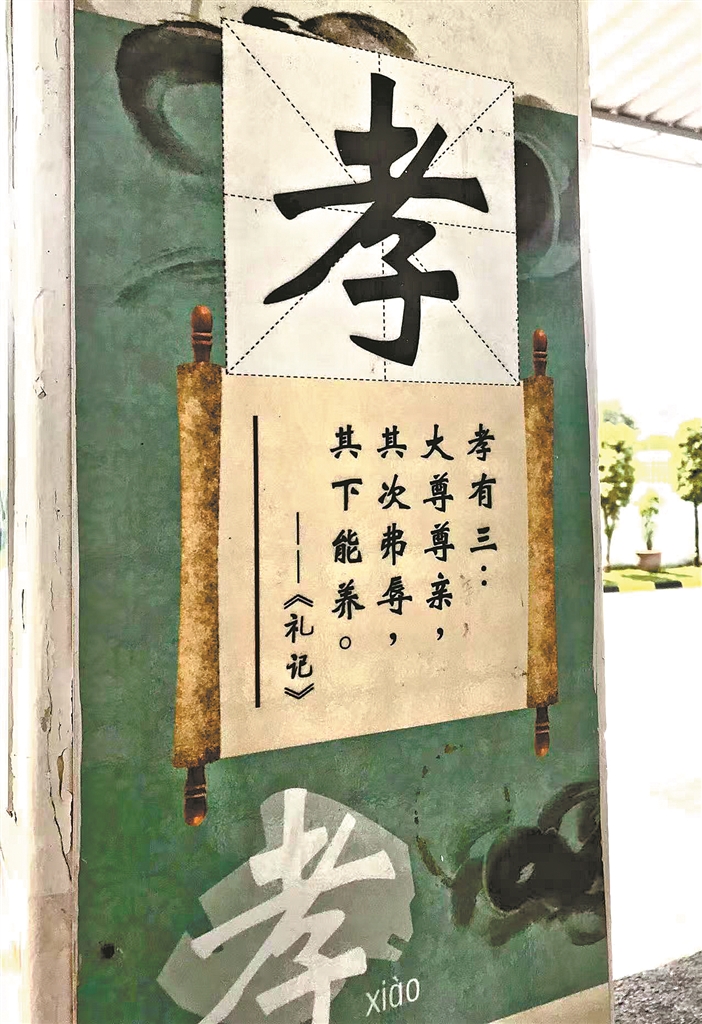 孝
孝有三：
大尊尊亲，
其次弗辱，
其下能养。
——《礼记》
孝
xiào